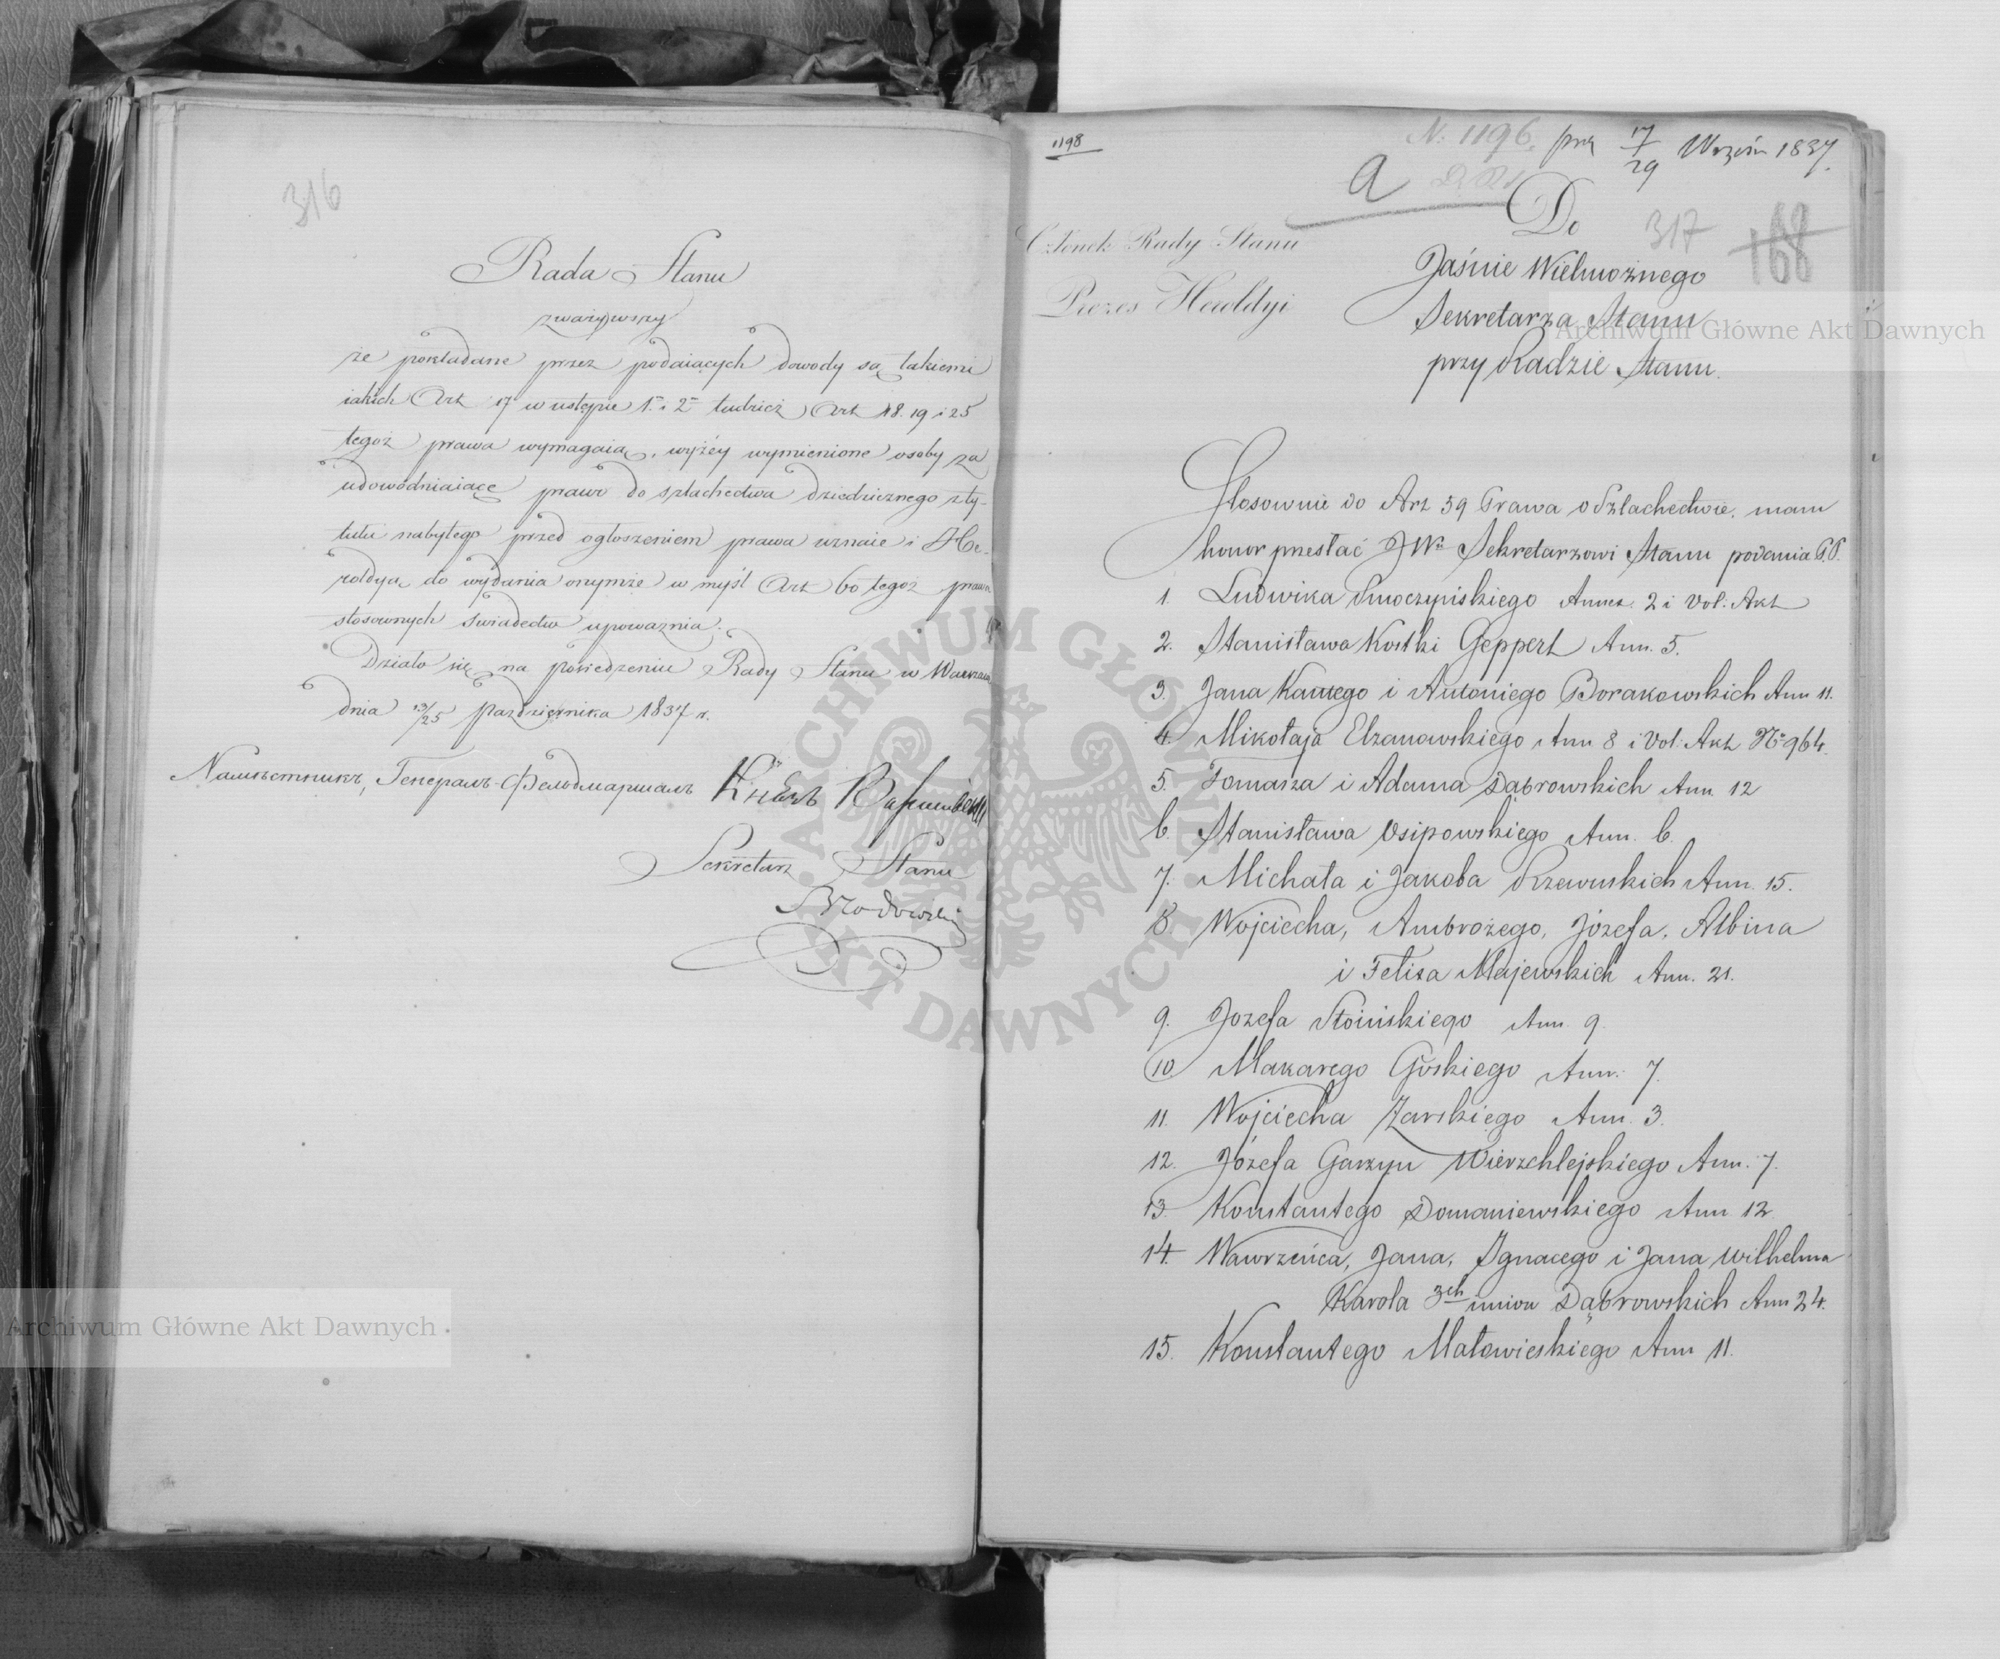 316
Rada Stanu
zważywszy
że pokładane przez podaiących dowody są takiemi
iakich Art 17 w ustępie 1m i 2m tudzież Art 18. 19 i 25
tegoż prawa wymagaią, wyżéy wymienione osoby za
udowodniaiące prawo do szlachectwa dziedzicznego z ty-
tułu nabytego przed ogłoszeniem prawa uznaie i He-
roldyą do wydania onymże w myśl Art 60 tegoż prawa
stosownych świadectw upoważnia.
Działo się na posiedzeniu Rady Stanu w Warszawie
dnia 13/25 października 1837 r.
Намѣстникъ, Генералъ-Фельдмаршалъ Князь Варшавскій
Sekretarz Stanu
Archiwum Główne Akt Dawnych
1198
N. 1196. prz 17/29 Wrześn 1837.
a
317
168
Członek Rady Stanu
Prezes Heroldyi
Do
Jaśnie Wielmożnego
Sekretarza Stanu
przy Radzie Stanu.
Archiwum Główne Akt Dawnych
Stosownie do Art 59 Prawa o Szlachectwie, mam
honor przesłać JWu Sekretarzowi Stanu podania P.P.
1. Ludwika Smoczyńskiego Annex. 2 i Vol. Akt
2. Stanisława Kostki Geppert Ann. 5.
3. Jana Kantego i Antoniego Borakowskich Ann 11.
4. Mikołaja Elzanowskiego Ann 8 i Vol: Akt No 964.
5. Tomasza i Adama Dąbrowskich Ann 12
6. Stanisława Osipowskiego Ann. 6.
7. Michała i Jakóba Rzewuskich Ann. 15.
8. Wojciecha, Ambrożego, Józefa, Albina
i Felixa Majewskich Ann. 21.
9. Jozefa Stoińskiego Ann. 9.
10. Makarego Górskiego Ann: 7.
11. Wojciecha Żarskiego Ann. 3.
12. Józefa Garzyn Wierzchlejskiego Ann. 7.
13. Konstantego Domaniewskiego Ann 12
14. Wawrzeńca, Jana, Ignacego i Jana Wilhelma
Karola 3ch imion Dąbrowskich Ann 24.
15. Konstantego Małowieskiego Ann 11.
ARCHIWUM GŁÓWNE AKT DAWNYCH